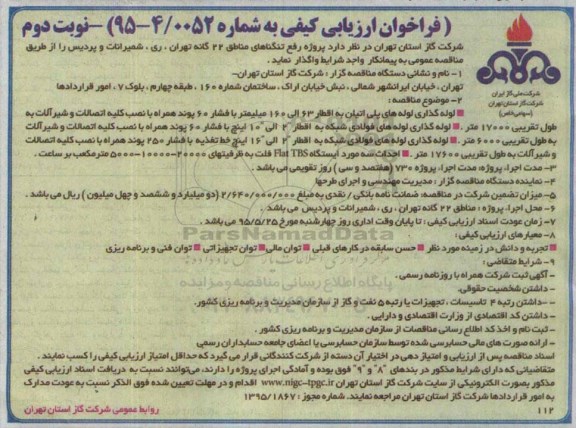 ( فراخوان ارزیابی کیفی به شماره ۴/۰۰۵۲-۹۵) -نوبت دوم
شرکت ملی گاز ایران
شرکت گاز استان تهران
(سهامی خاص)
شرکت گاز استان تهران در نظر دارد پروژه رفع تنگناهای مناطق ۲۲ گانه تهران ، ری ، شمیرانات و پردیس را از طریق
مناقصه عمومی به پیمانکار واجد شرایط واگذار نماید .
۱- نام و نشانی دستگاه مناقصه گزار : شرکت گاز استان تهران-
تهران ، خیابان ایرانشهر شمالی ، نبش خیابان اراک ، ساختمان شماره ۱۶۰ ، طبقه چهارم ، بلوک ۷ ، امور قراردادها
۲- موضوع مناقصه :
لوله گذاری لوله های پلی اتیلن به اقطار ۶۳ الی ۱۶۰ میلیمتر با فشار ۶۰ پوند همراه با نصب کلیه اتصالات و شیرآلات به
طول تقریبی ۱۷۰۰۰ متر . لوله گذاری لوله های فولادی شبکه به اقطار "۲ الی "۱۰ اینچ با فشار ۶۰ پوند همراه با نصب کلیه اتصالات و شیرآلات
به طول تقریبی ۶۰۰۰ متر . لوله گذاری لوله های فولادی شبکه به اقطار "۲ الی "۱۶ اینچ خط تغذیه با فشار ۲۵۰ پوند همراه با نصب کلیه اتصالات
و شیرآلات به طول تقریبی ۱۷۶۰۰ متر . احداث سه مورد ایستگاه Flat TBS فلت به ظرفیتهای ۲۰۰۰۰-۱۰۰۰۰-۵۰۰۰ مترمکعب بر ساعت .
۳- مدت اجرا، پروژه: مدت اجرا، پروژه ۷۳۰ (هفتصد و سی ) روز تقویمی می باشد .
۴- نماینده دستگاه مناقصه گزار : مدیریت مهندسی و اجرای طرحها
۵- میزان تضمین شرکت در مناقصه: ضمانت نامه بانکی / نقدی به مبلغ ۲/۶۴۰/۰۰۰/۰۰۰ (دو میلیارد و ششصد و چهل میلیون ) ریال می باشد .
۶- محل اجرا، پروژه : مناطق ۲۲ گانه تهران ، ری ، شمیرانات و پردیس می باشد .
۷- زمان عودت اسناد ارزیابی کیفی : تا پایان وقت اداری روز چهارشنبه مورخ ۹۵/۵/۲۵ می باشد .
ParsNamadData
۸- معیارهای ارزیابی کیفی :
تجربه و دانش در زمینه مورد نظر حسن سابقه در کارهای قبلی توان مالی توان تجهیزاتی توان فنی و برنامه ریزی
۹- شرایط متقاضی :
پایگاه اطلاع رسانی مناقصه و مزایده
- آگهی ثبت شرکت همراه با روزنامه رسمی .
- داشتن شخصیت حقوقی.
- داشتن رتبه ۴ تاسیسات ، تجهیزات یا رتبه ۵ نفت و گاز از سازمان مدیریت و برنامه ریزی کشور.
- داشتن کد اقتصادی از وزارت اقتصادی و دارایی .
- ثبت نام و اخذ کد اطلاع رسانی مناقصات از سازمان مدیریت و برنامه ریزی کشور .
- ارائه صورت های مالی حسابرسی شده توسط سازمان حسابرسی یا اعضای جامعه حسابداران رسمی
اسناد مناقصه پس از ارزیابی و امتیاز دهی در اختیار آن دسته از شرکت کنندگانی قرار می گیرد که حداقل امتیاز ارزیابی کیفی را کسب نمایند .
متقاضیانی که دارای شرایط مذکور در بندهای "۸" و "۹" فوق بوده و آمادگی اجرای پروژه را دارند، می‌توانند نسبت به دریافت اسناد ارزیابی کیفی
مذکور بصورت الکترونیکی از سایت شرکت گاز استان تهران www.nigc-tpgc.ir اقدام و در مهلت تعیین شده فوق الذکر نسبت به عودت مدارک
به امور قراردادها شرکت گاز استان تهران مراجعه نمایند. شماره مجوز : ۱۳۹۵/۱۸۶۷
۱۱۲
روابط عمومی شرکت گاز استان تهران